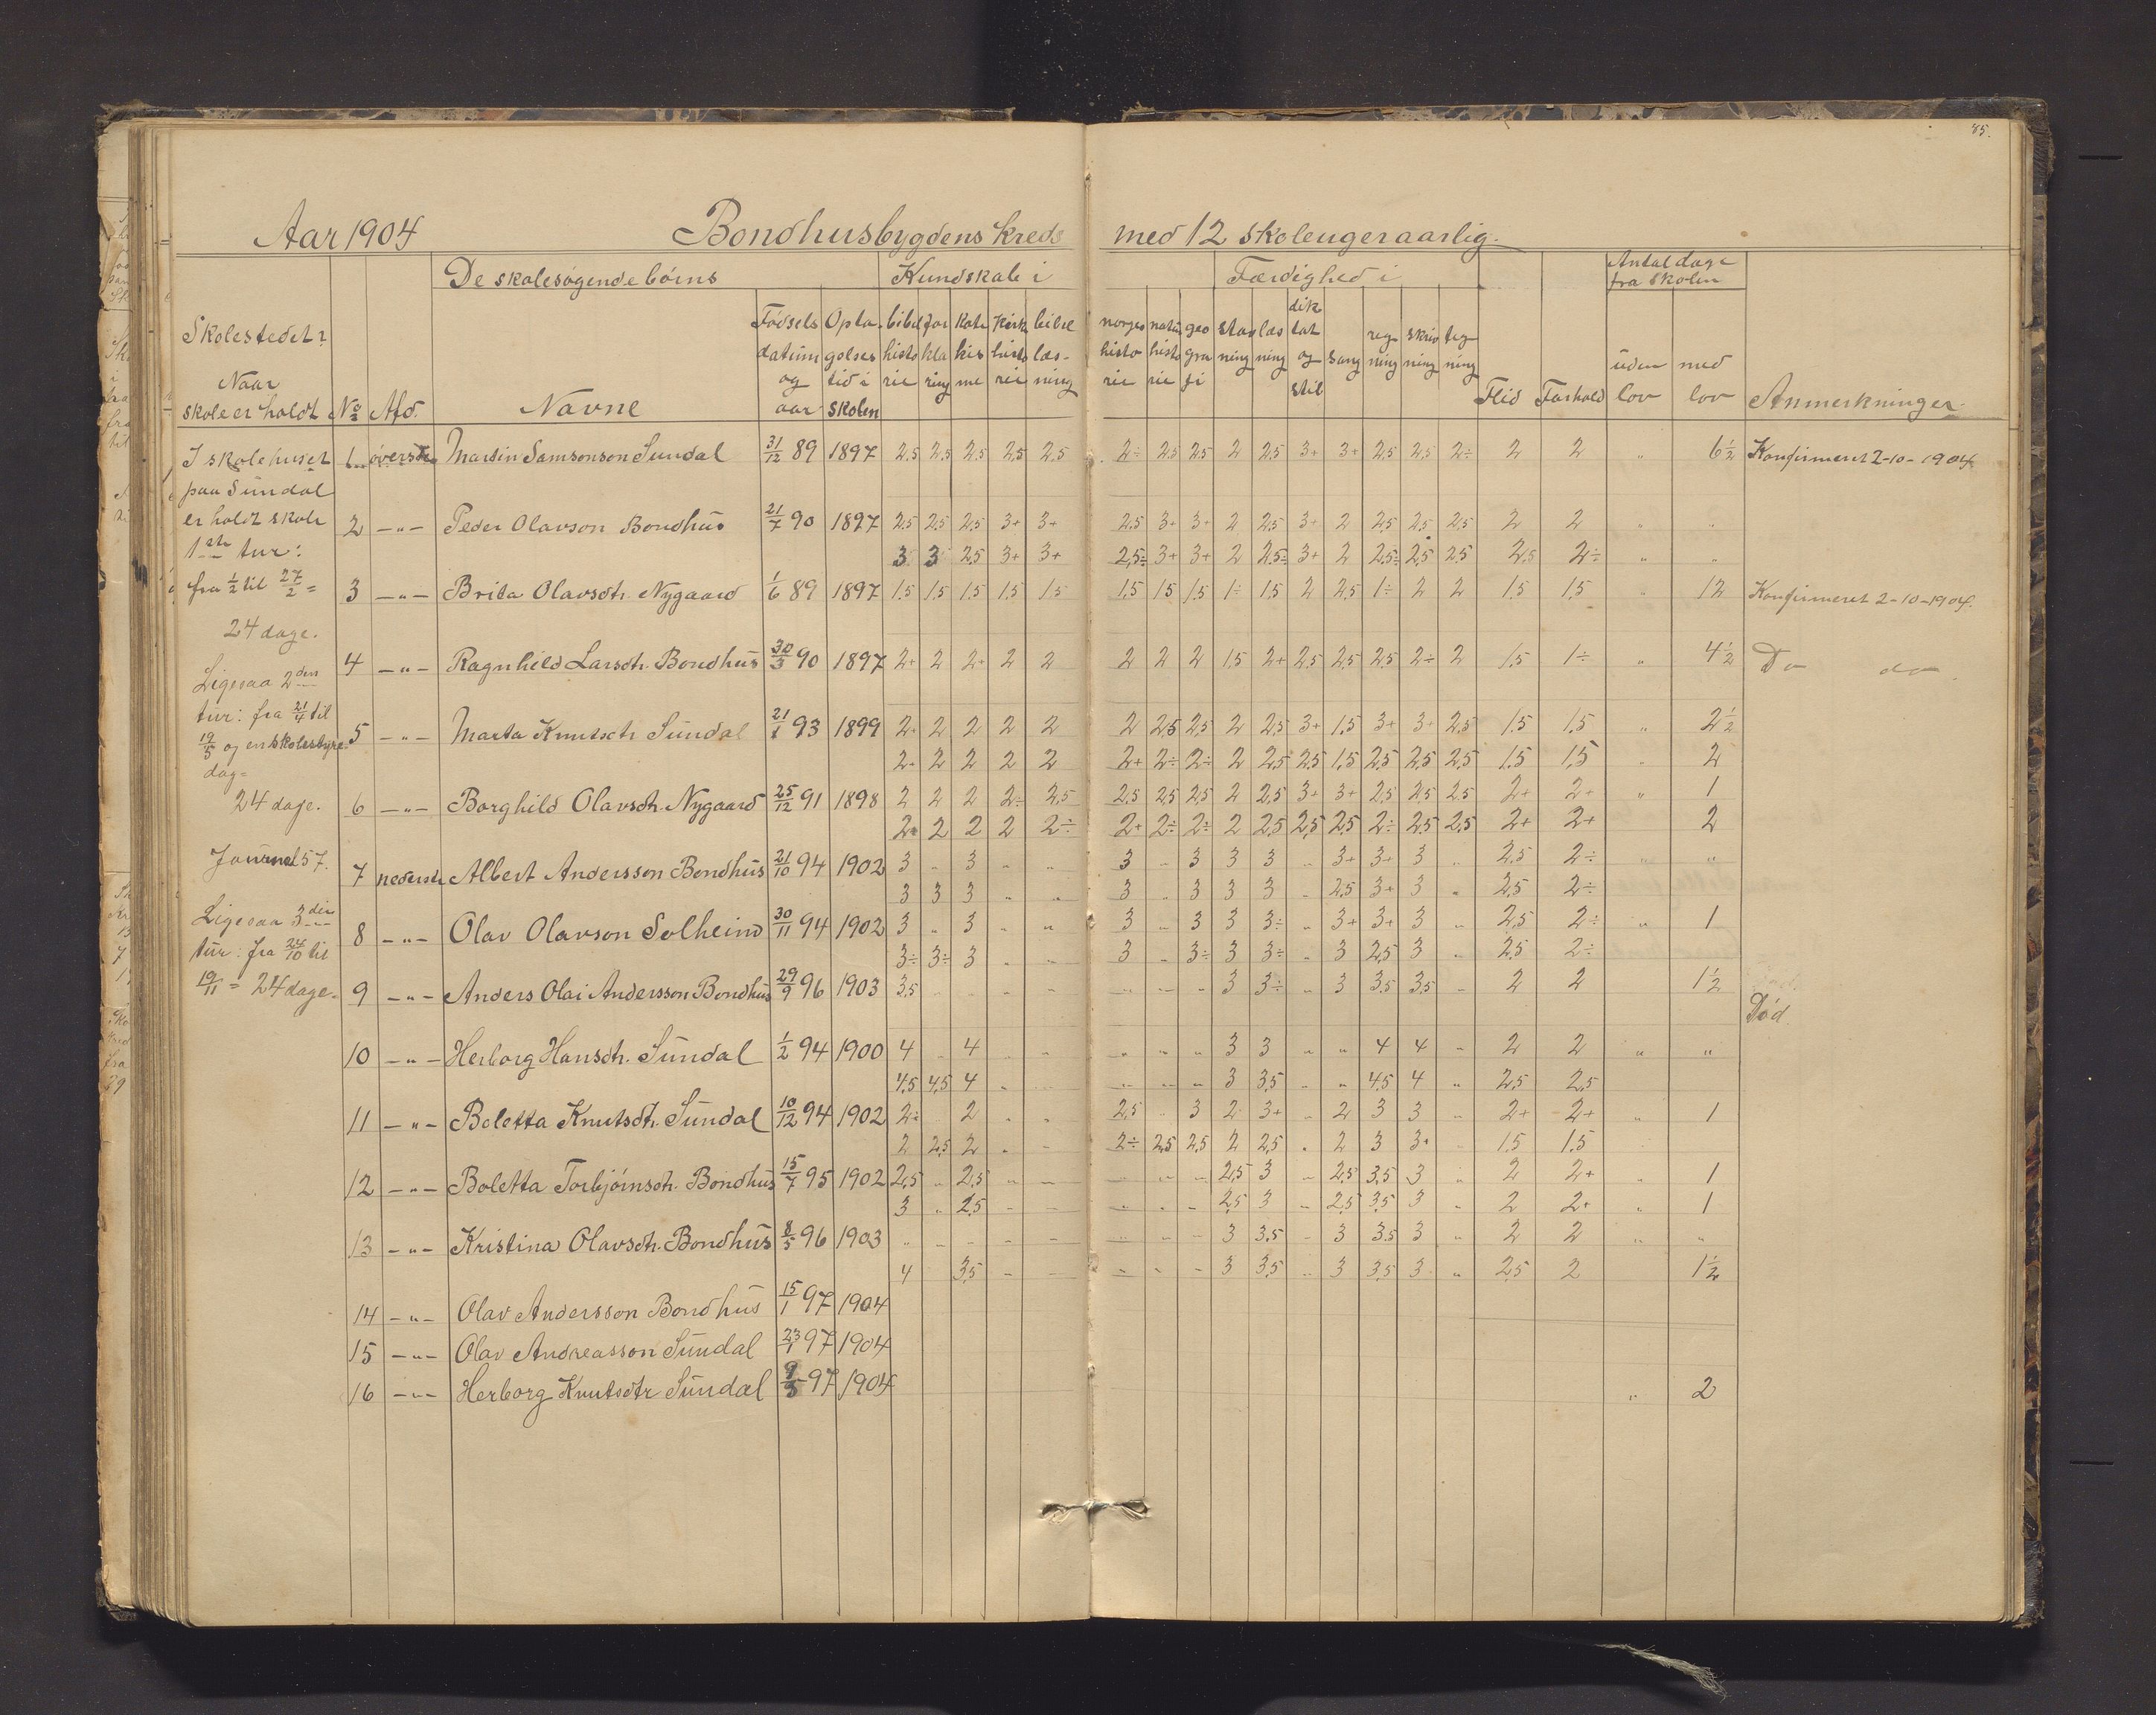 85.
Aar 1904 Bondhusbygdens kreds med 12 skoleuger aarlig.
De skolesøgende børns Kundskab i Færdighed i Antal dage fra skolen
Skolestedet?
Naar
skole er holdt
No Afd. Navne
Fødsels datum og aar
Optagelses tid i skolen
bibel historie
forklaring
katekisme
kirkehistorie
bibellæsning
norges historie
naturhistorie
geografi
stavning
læsning
diktat og stil
sang
regning
skrivning
tegning
Flid
Forhold
uden lov
med lov
Anmerkninger.
I skolehuset
paa Sundal
er holdt skole
1ste tur:
fra 1/2 til 27/2 =
24 dage.
Ligesaa 2den
tur: fra 21/4 til
19/5 og en skolestyre
dag =
24 dage.
Journal 57.
Ligesaa 3die
tur: fra 24/10 til
19/11 = 24 dage.
1 øverste Martin Samsonson Sundal 31/12 89 1897 2,5 2,5 2,5 2,5 2,5 2÷ 2,5 2,5 2 2,5 3+ 3+ 2,5 2,5 2÷ 2 2 " 6½ Konfirmeret 2-10-1904
2 -"- Peder Olavson Bondhus 21/7 90 1897 2,5 2,5 2,5 3+ 3+ 2,5 3+ 3+ 2 2,5 3+ 2 2,5 2,5 2,5 2 2 " "
3 3 2,5 3+ 3+ 2,5÷ 3+ 3+ 2 2,5÷ 3+ 2 2,5÷ 2,5 2,5 2,5 2÷ " "
3 -"- Brita Olavsdtr. Nygaard 1/6 89 1897 1,5 1,5 1,5 1,5 1,5 1,5 1,5 1,5 1÷ 1,5 2 2,5 1÷ 2 2 1,5 1,5 " 12 Konfirmeret 2-10-1904.
4 -"- Ragnhild Larsdtr. Bondhus 30/3 90 1897 2+ 2 2+ 2 2 2 2 2 1,5 2+ 2,5 2,5 2,5 2÷ 2 1,5 1÷ " 4½ Do do
5 -"- Marta Knutsdtr Sundal 21/1 93 1899 2+ 2 2 2 2 2 2,5 2,5 2 2,5 3+ 1,5 3+ 3+ 2,5 1,5 1,5 " 2½
2+ 2 2 2 2 2+ 2÷ 2÷ 2 2,5 2,5 1,5 2,5 2,5 2,5 1,5 1,5 " 2
6 -"- Borghild Olavsdtr. Nygaard 25/12 91 1898 2 2 2 2÷ 2,5 2,5 2,5 2,5 2 2,5 3+ 3+ 2,5 2,5 2,5 2+ 2+ " 1
2+ 2 2 2 2÷ 2+ 2÷ 2÷ 2 2,5 2,5 2,5 2÷ 2,5 2,5 2+ 2+ 2
7 nederste Albert Andersson Bondhus 21/10 94 1902 3 " 3 " " 3 " 3 3 3 " 3+ 3+ 3 " 2,5 2÷ " "
3 3 3 " " 3 " 3 3 3 " 2,5 3+ 3 " 2,5 2÷
8 -"- Olav Olavson Solheim 30/11 94 1902 3 " 3 " " 3 " 3 3 3÷ " 3+ 3+ 3 " 2,5 2÷ " 1
3÷ 3÷ 3 " " 3 " 3÷ 3 3÷ " 3 2,5 3 " 2,5 2÷
9 -"- Anders Olai Andersson Bondhus 29/9 96 1903 3,5 " " " " " " " 3 3÷ " 3 3,5 3,5 " 2 2 1½
Død
10 -"- Herborg Hansdtr. Sundal 1/2 94 1900 4 " 4 " " " " " 3 3 " " 4 4 " 2 2 " "
4,5 4,5 4 " " " " " 3 3,5 " " 4,5 4 " 2,5 2,5
11 -"- Boletta Knutsdtr. Sundal 10/12 94 1902 2÷ 2 " " 2,5 " 3 2 3+ " 2 3 3 " 2+ 2+ " 1
2 2,5 2 " " 2÷ 2,5 2,5 2 2,5 " 2 3 3+ " 1,5 1,5
12 -"- Boletta Torbjørnsdtr. Bondhus 15/7 95 1902 2,5 " 2,5 " " " " " 2,5 3 " 2,5 3,5 3 " 2 2+ " 1
3 " 2,5 " " " " " 2,5 3 " 2,5 3,5 3 " 2 2+ " 1
13 -"- Kristina Olavsdtr. Bondhus 8/5 96 1903 " " " " " " " " 3 3,5 " 3 3,5 3 " 2 2 " "
4 3,5 " " " " " 3 3,5 " 3 3,5 3 " 2,5 2 1½
14 -"- Olav Andersson Bondhus 15/1 97 1904
15 -"- Olav Andreasson Sundal 23/1 97 1904
16 -"- Herborg Knutsdtr Sundal 9/5 97 1904 " 2